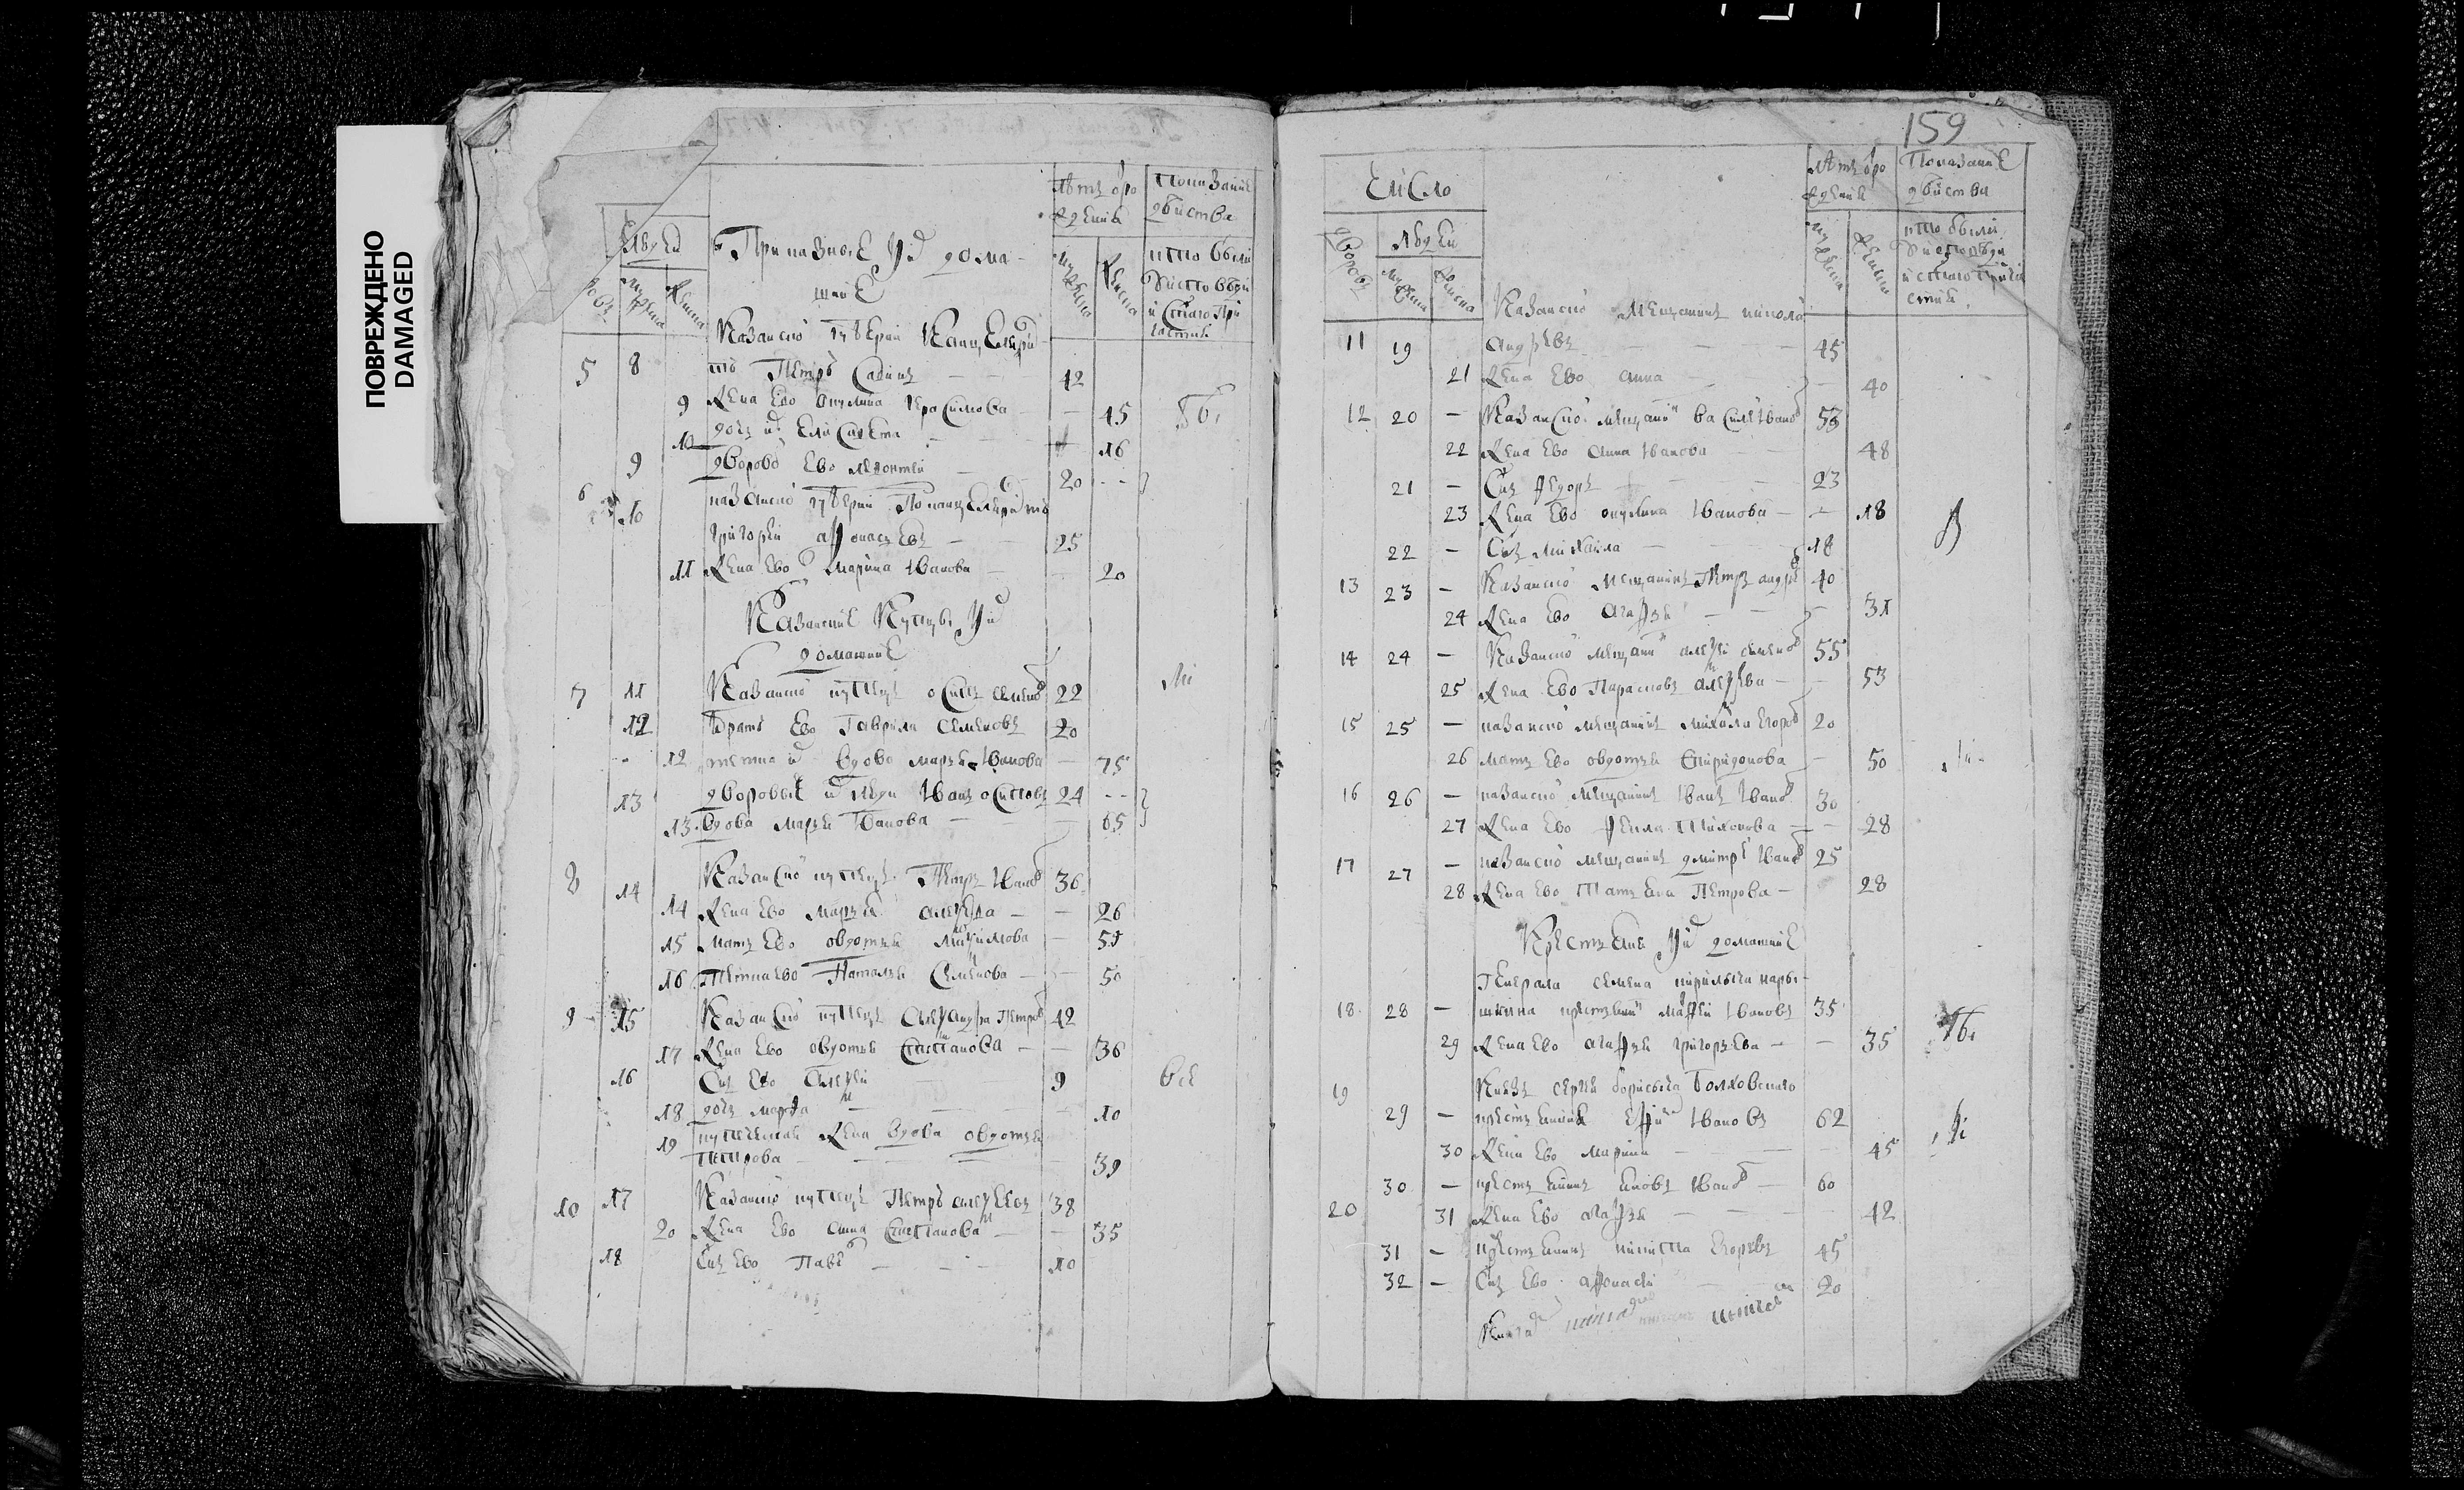 ПОВРЕЖДЕНО
DAMAGED
людей
Приказные и их дома-
шние
Летъ от ро
ждения
Показание
действа
мужеска
женска
кто были
у исповеди
и святаго при
частия
5 8 Казанской губернии канцелярист
Петръ Савинъ — 42
9 жена ево акулина герасимова — 45
10 дочь их елисавета — 16
9 дворовой ево леонтей — 20
6 10 казанской губернии подканцеляристъ
григорей афонасьевъ — 25
11 жена ево марина иванова — 20
Казанские купцы и их
домашние
7 11 Казанской купецъ осипъ семенов 22
12 братъ ево гаврила семеновъ 20
12 тетка их вдова марья иванова — 75
13 дворовые их люди иванъ осиповъ 24
13 вдова марья иванова — 65
8 14 Казанской купецъ петръ иванов 36
14 жена ево марья — 26
15 мать ево овдотья максимова — 51
16 тетка ево наталья семенова — 50
9 15 Казанской купецъ александра петров 42
17 жена ево овдотья степанова — 36
16 сынъ ево алексей 9 все
18 дочь марфа — 10
19 жена вдова овдотья
петрова — 39
10 17 Казанской купецъ петръ алексеевъ 38
20 жена ево анна степанова — 35
18 сынъ ево павел — 10
159
Число
дворовъ
людей
мужеска
женска
Летъ от ро
ждения
Показание
действа
мужеска
женска
кто были
у исповеди
и святаго прича
стия
Казанской мещанинъ никола
11 19 андреевъ — 45
21 жена ево анна — 40
12 20 — Казанской мещанин василей иванов 53
22 жена ево анна иванова — 48
21 — сынъ федоръ — 23
23 жена ево акулина иванова — 18
22 — сынъ михайла — 18
13 23 — Казанской мещанинъ петръ андреев 40
24 жена ево агафья — 31
14 24 — Казанской мещанин алексей семенов 55
25 жена ево парасковья алексеева — 53
15 25 — казанской мещанинъ михайла егоров 20
26 мать ево овдотья спиридонова — 50
16 26 — казанской мещанинъ иванъ иванов 30
27 жена ево фекла тихонова — 28
17 27 — казанской мещанинъ дмитрей иванов 25
28 жена ево татьяна петрова — 28
Крестьяне и их домашние
генерала семена кирилыча нары-
18 28 — шкина крестьянин матфей ивановъ 35
29 жена ево агафья григорьева — 35
19 Князь сергея борисыча болховскаго
29 — крестьянинъ ефим ивановъ 62
30 жена ево марина — 45
30 — крестьянинъ яковъ иванов — 60
20 31 жена ево агафья — 42
31 — крестьянинъ никита егоровъ 45
32 — сынъ ево афонасей — 20